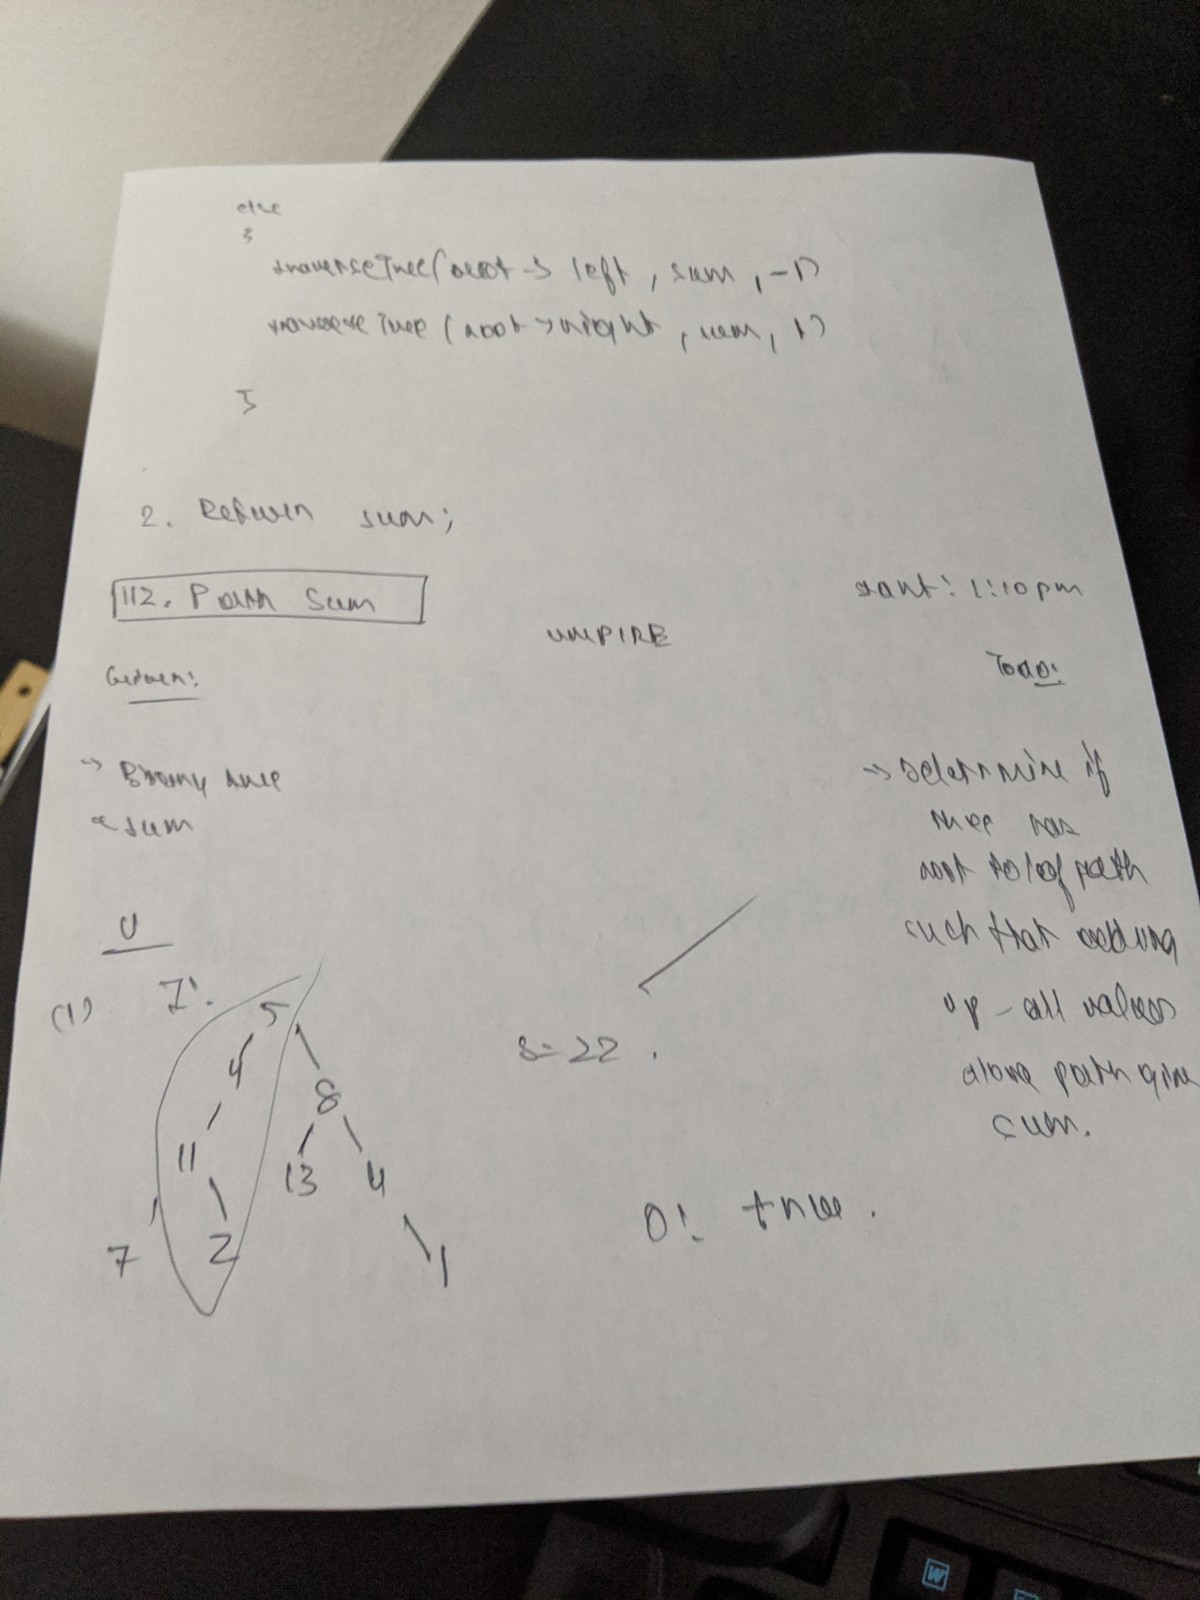 else
{
traverseTree(root -> left, sum, -1)
traverseTree (root -> right, sum, 1)
}
2. Return sum;
112. Path Sum
start: 1:10pm
UMPIRE
Given:
Todo:
-> Binary tree
& sum
-> Determine if
tree has
root to leaf path
such that adding
up - all values
along path give
sum.
U
(1) I:
5
4
8
S = 22.
11
13
4
7
2
1
O: true.
W